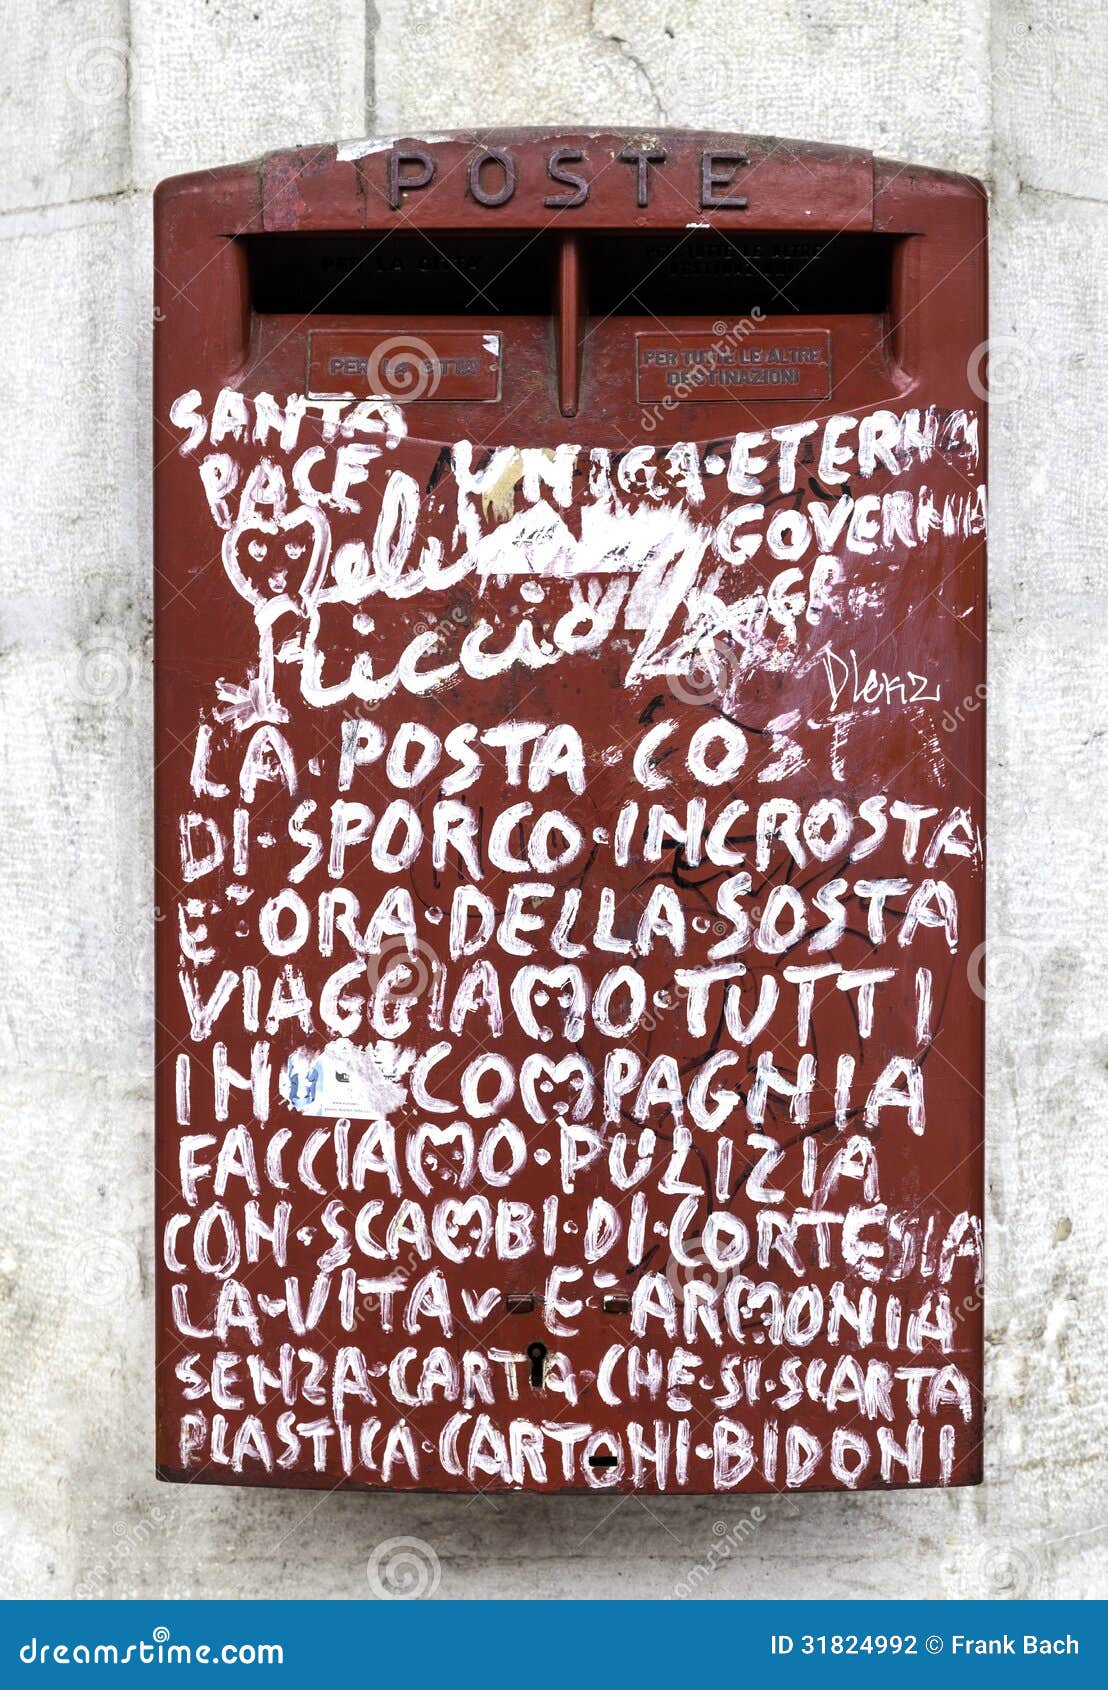 POSTE
PER LA CITTA'
PER TUTTE LE ALTRE
DESTINAZIONI
SANTA
PACE
UNICA·ETERNA
GOVERNA
Riccio
LA·POSTA COST
DI·SPORCO·INCROSTA
E' ORA·DELLA·SOSTA
VIAGGIAMO·TUTTI
IN COMPAGNIA
FACCIAMO·PULIZIA
CON·SCAMBI·DI·CORTESIA
LA·VITA E' ARMONIA
SENZA·CARTA·CHE·SI·SCARTA
PLASTICA·CARTONI·BIDONI
dreamstime.com
ID 31824992 © Frank Bach